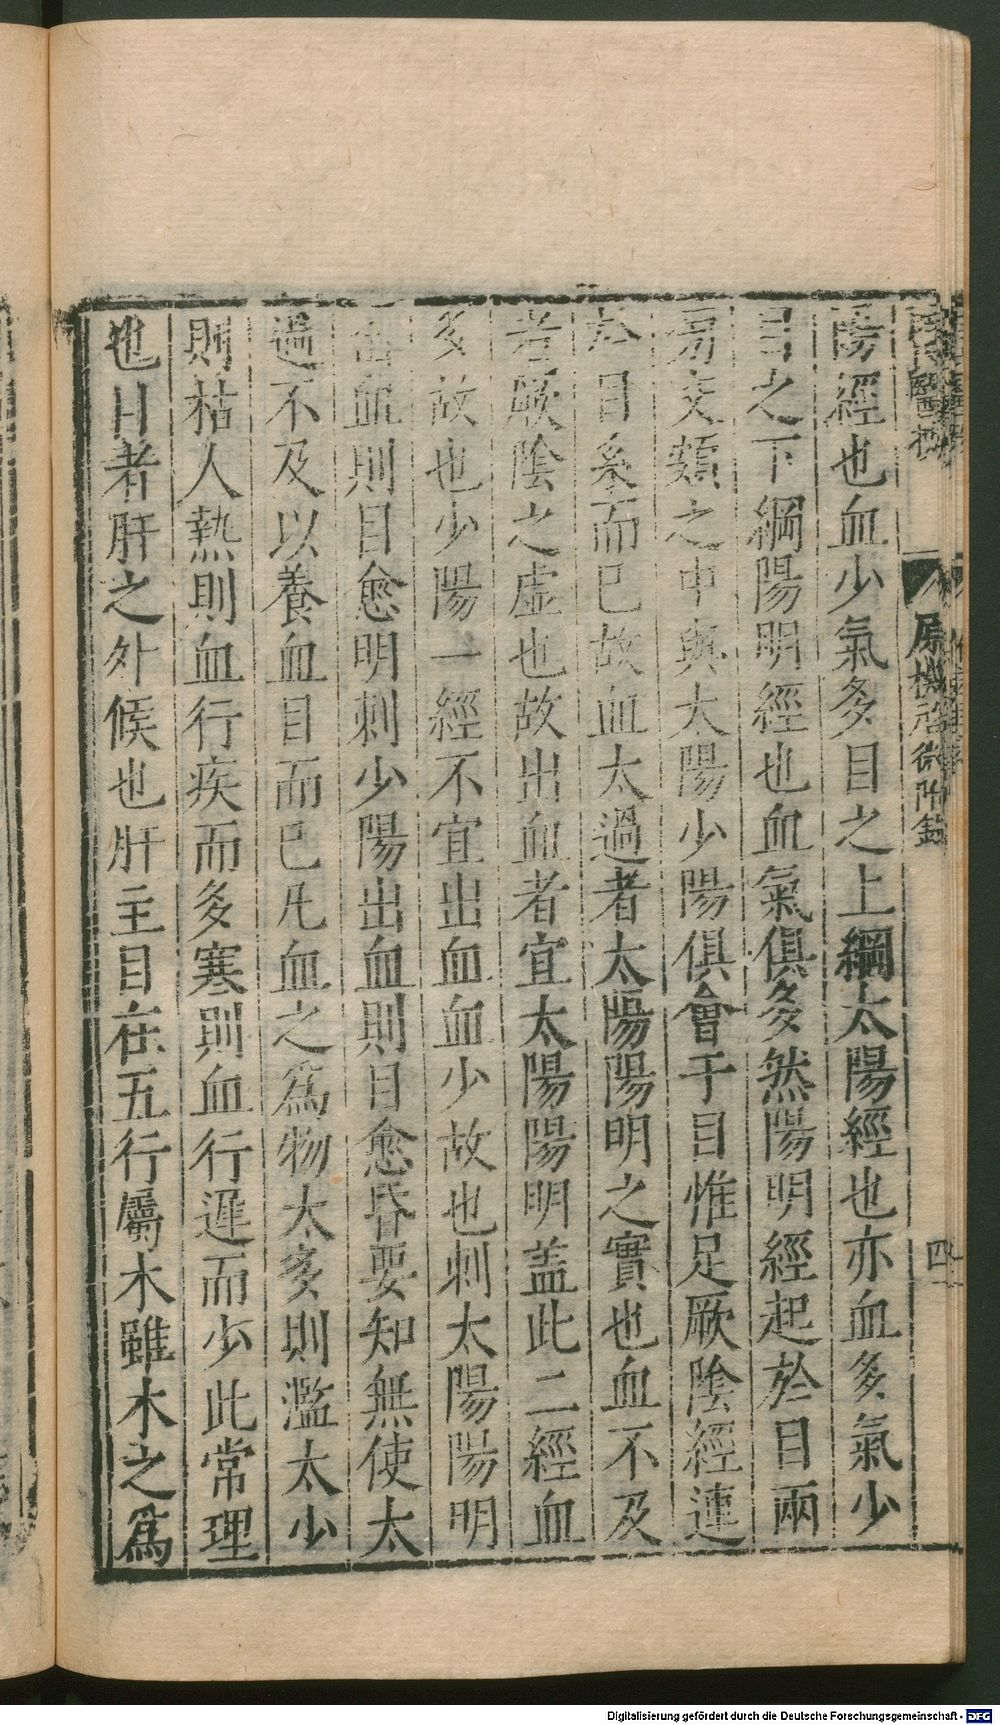 原機啓微附錄
四
陽經也血少氣多目之上綱太陽經也亦血多氣少
目之下綱陽明經也血氣俱多然陽明經起於目兩
旁交頞之中與太陽少陽俱會于目惟足厥陰經連
於目系而已故血太過者太陽陽明之實也血不及
者厥陰之虛也故出血者宜太陽陽明盖此二經血
多故也少陽一經不宜出血血少故也刺太陽陽明
出血則目愈明刺少陽出血則目愈昏要知無使太
過不及以養血目而已凡血之爲物太多則濫太少
則枯人熱則血行疾而多寒則血行遲而少此常理
也目者肝之外候也肝主目在五行屬木雖木之爲
Digitalisierung gefördert durch die Deutsche Forschungsgemeinschaft - DFG